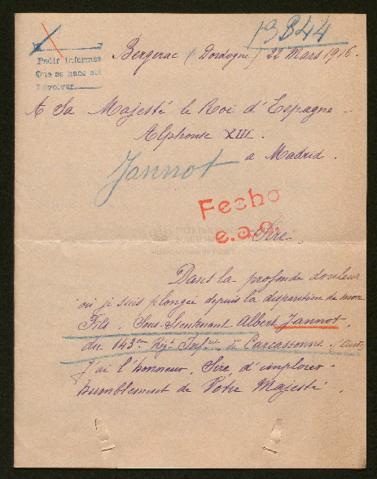 13844
Pedir informes
Que se hace asi
Devolver
Bergerac (Dordogne) 22 Mars 1916.
A Sa Majesté le Roi d'Espagne
Alphonse XIII.
a Madrid.
Jannot
Fecho
Sire.
Dans la profonde douleur
où je suis plongée depuis la disparition de mon
Fils, Sous-lieutenant Albert Jannot
du 143eme Régt Infie à Carcassonne, (Aude)
J'ai l'honneur, Sire, d'implorer
humblement de Votre Majesté